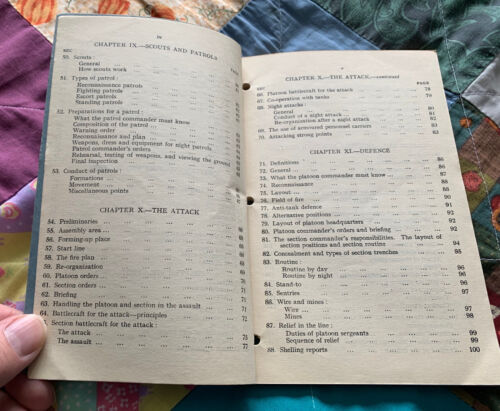 iv
CHAPTER IX.—SCOUTS AND PATROLS
SEC. PAGE
50. Scouts:
General
How scouts work
51. Types of patrol:
Reconnaissance patrols
Fighting patrols
Escort patrols
Standing patrols
52. Preparations for a patrol:
What the patrol commander must know
Composition of the patrol
Warning order
Reconnaissance and plan
Weapons, dress and equipment for night patrols
Patrol commander's orders
Rehearsal, testing of weapons, and viewing the ground
Final inspection
53. Conduct of patrol:
Formations
Movement
Miscellaneous points
CHAPTER X.—THE ATTACK
54. Preliminaries
55. Assembly area
56. Forming-up place
57. Start line
58. The fire plan
59. Re-organization
60. Platoon orders
61. Section orders
62. Briefing
63. Handling the platoon and section in the assault
64. Battlecraft for the attack—principles
Section battlecraft for the attack:
The attack ... 75
The assault ... 77
v
CHAPTER X.—THE ATTACK—continued
SEC. PAGE
66. Platoon battlecraft for the attack ... 78
67. Co-operation with tanks ... 79
68. Night attacks:
General ... 80
Conduct of a night attack ... 81
Re-organization after a night attack ... 82
69. The use of armoured personnel carriers ... 83
70. Attacking strong points ... 83
CHAPTER XI.—DEFENCE
71. Definitions ... 86
72. General ... 86
73. What the platoon commander must know
74. Reconnaissance
75. Layout
76. Field of fire
77. Anti-tank defence ... 91
78. Alternative positions ... 91
79. Layout of platoon headquarters ... 92
80. Platoon commander's orders and briefing ... 92
81. The section commander's responsibilities. The layout of
section positions and section routine ... 94
82. Concealment and types of section trenches ... 95
83. Routine:
Routine by day ... 96
Routine by night ... 96
84. Stand-to ... 96
85. Sentries ... 97
86. Wire and mines:
Wire ... 97
Mines ... 98
87. Relief in the line:
Duties of platoon sergeants ... 99
Sequence of relief ... 99
88. Shelling reports ... 100